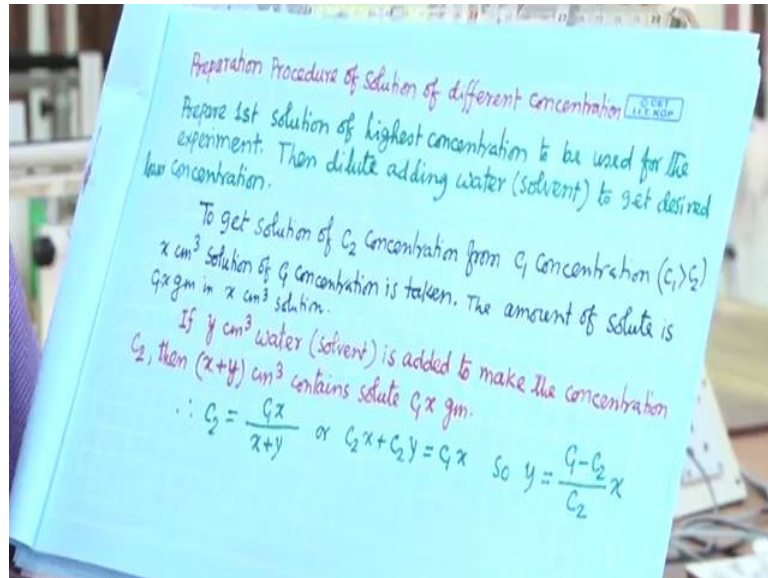 Preparation Procedure of Solution of different concentration
© CET
I.I.T. KGP
Prepare 1st solution of highest concentration to be used for the
experiment. Then dilute adding water (solvent) to get desired
low concentration.
To get solution of C₂ concentration from C₁ concentration (C₁>C₂)
x cm³ solution of C₁ concentration is taken. The amount of solute is
C₁x gm in x cm³ solution.
If y cm³ water (solvent) is added to make the concentration
C₂, then (x+y) cm³ contains solute C₁x gm.
∴ C₂ = C₁x / x+y or C₂x + C₂y = C₁x So y = C₁-C₂ / C₂ x